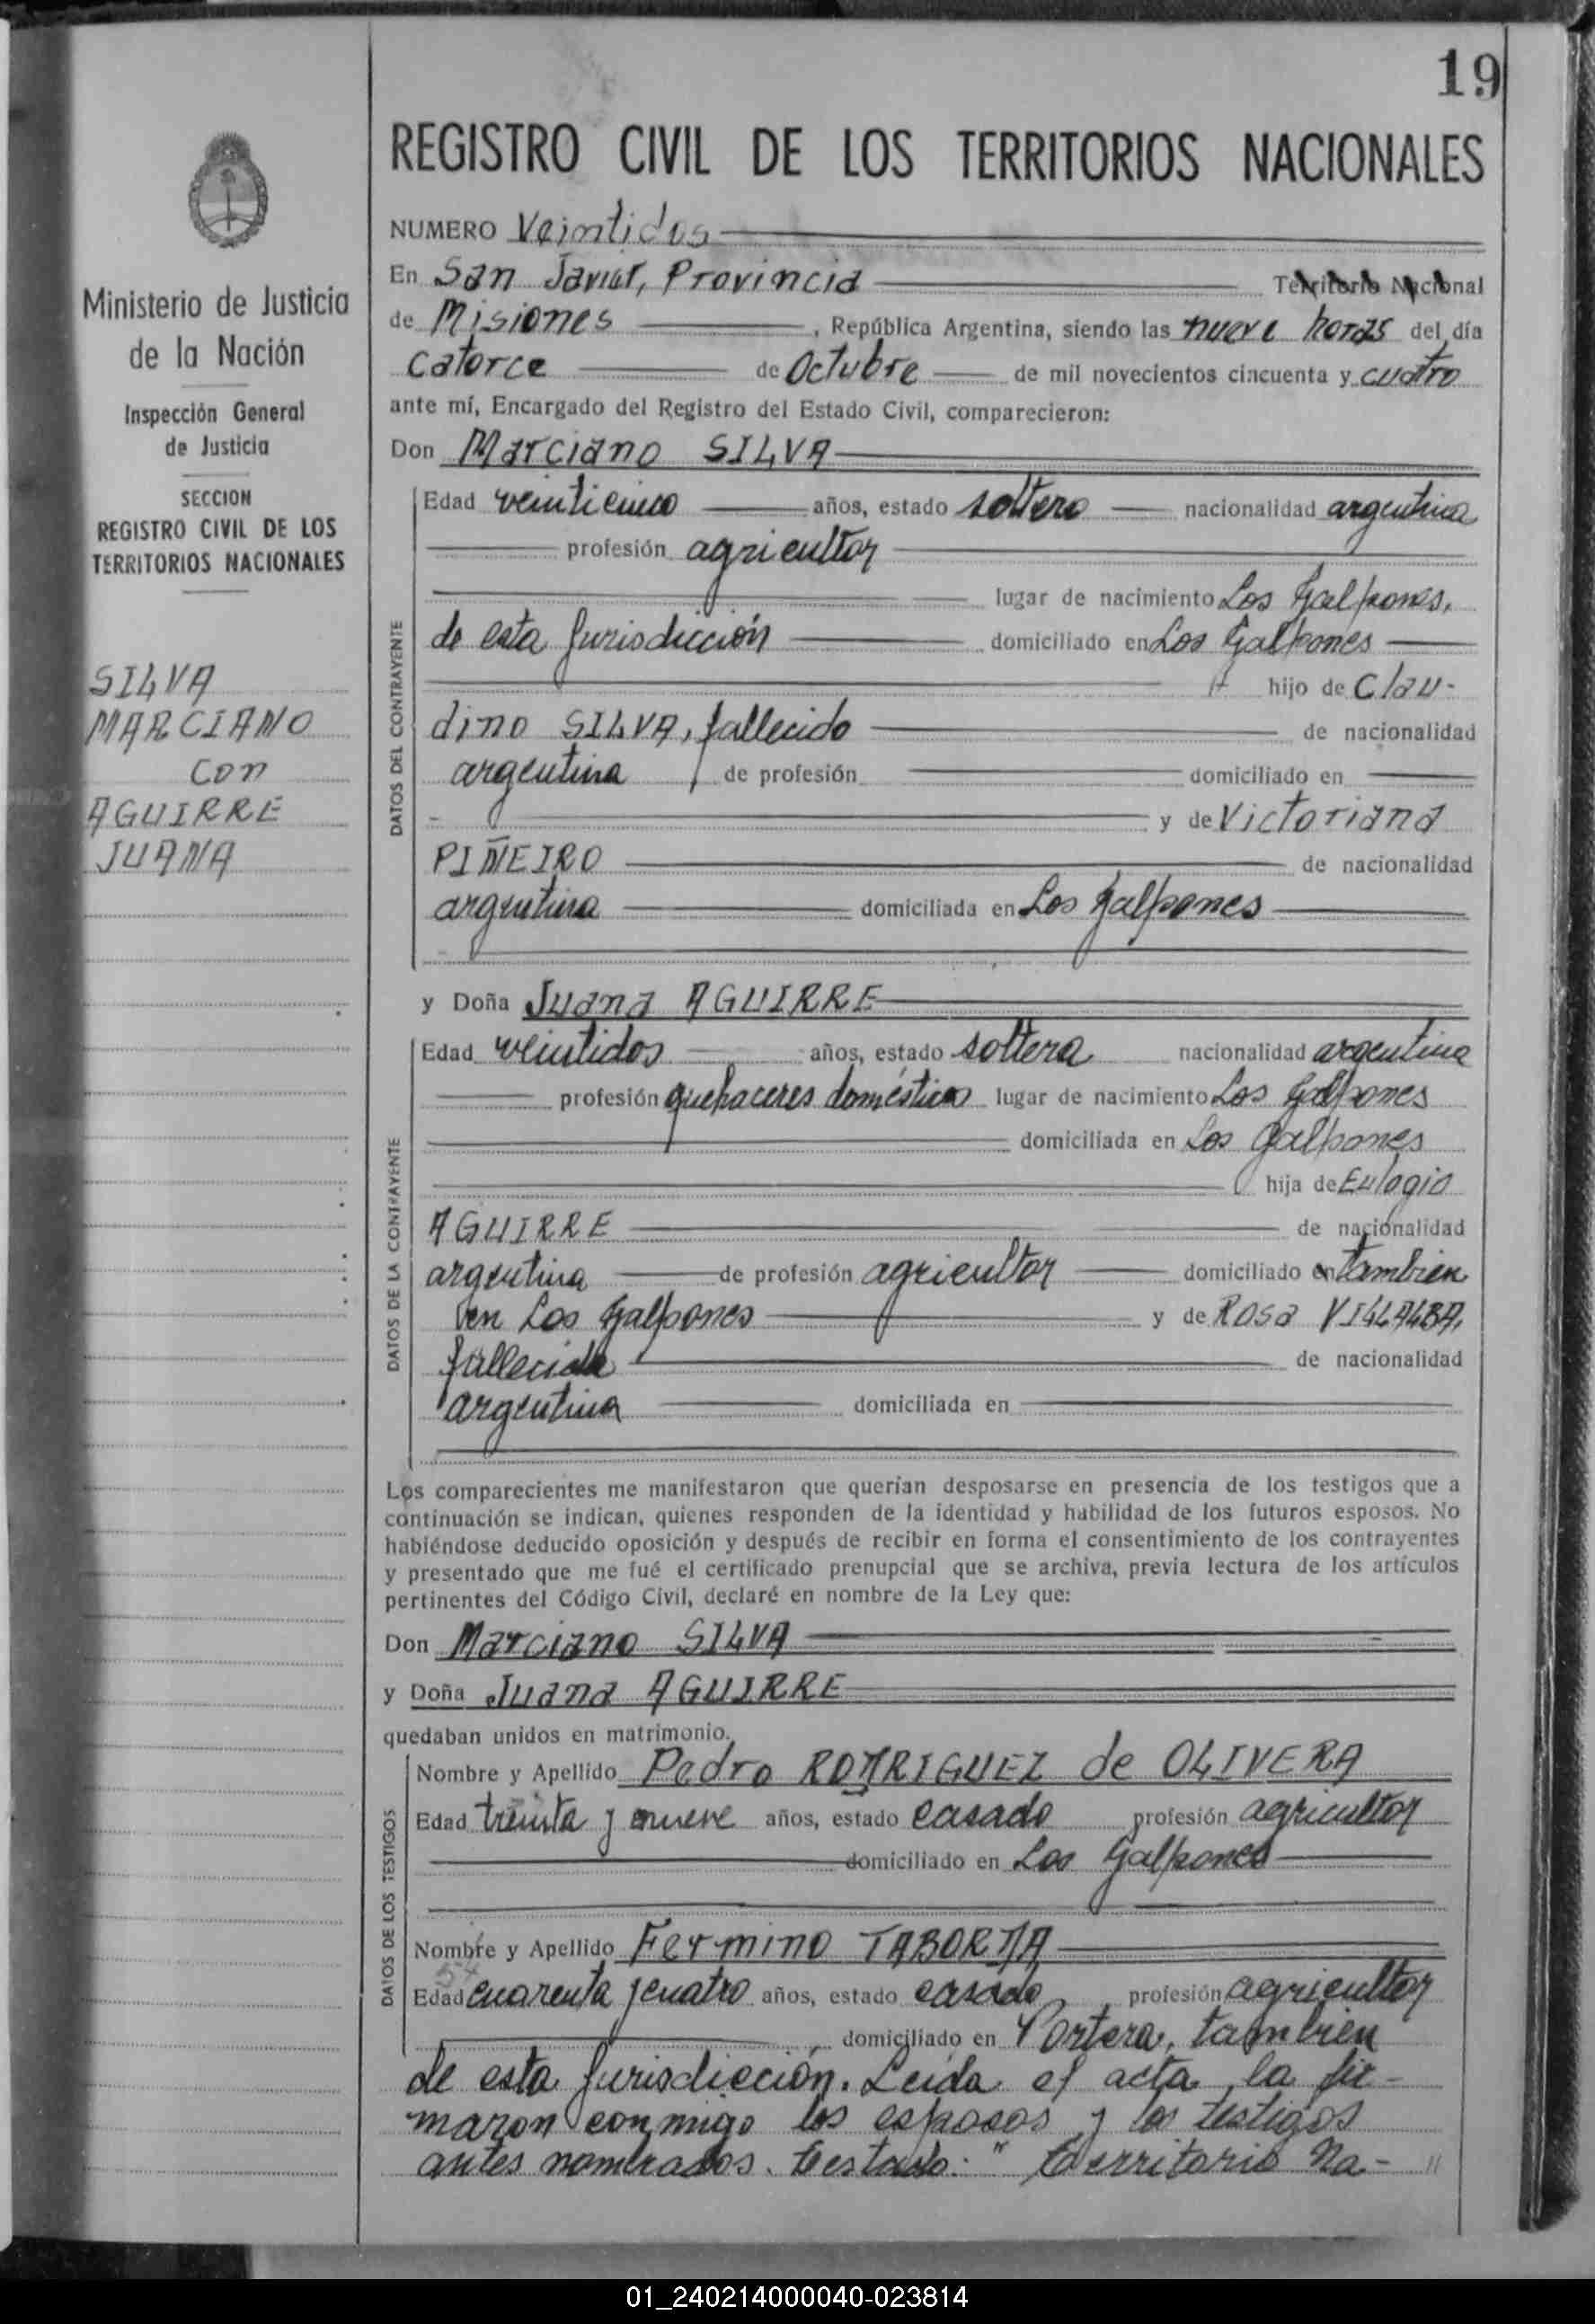 19
REGISTRO CIVIL DE LOS TERRITORIOS NACIONALES
Ministerio de Justicia
de la Nación
Inspección General
de Justicia
SECCION
REGISTRO CIVIL DE LOS
TERRITORIOS NACIONALES
SILVA
MARCIANO
con
AGUIRRE
JUANA
NUMERO Veintidos
En San Javier, Provincia Territorio Nacional
de Misiones, República Argentina, siendo las nueve horas del día
catorce de Octubre de mil novecientos cincuenta y cuatro
ante mí, Encargado del Registro del Estado Civil, comparecieron:
Don Marciano SILVA
DATOS DEL CONTRAYENTE
Edad veinticinco años, estado soltero nacionalidad argentina
profesión agricultor
lugar de nacimiento Los Galpones,
de esta Jurisdicción domiciliado en Los Galpones
hijo de Clau-
dino SILVA, fallecido de nacionalidad
argentina de profesión domiciliado en
y de Victoriana
PIÑEIRO de nacionalidad
argentina domiciliada en Los Galpones
y Doña Juana AGUIRRE
DATOS DE LA CONTRAYENTE
Edad veintidos años, estado soltera nacionalidad argentina
profesión quehaceres domésticos lugar de nacimiento Los Galpones
domiciliada en Los Galpones
hija de Eulogio
AGUIRRE de nacionalidad
argentina de profesión agricultor domiciliado en tambien
en Los Galpones y de Rosa VILLALBA,
fallecida de nacionalidad
argentina domiciliada en
Los comparecientes me manifestaron que querían desposarse en presencia de los testigos que a
continuación se indican, quienes responden de la identidad y habilidad de los futuros esposos. No
habiéndose deducido oposición y después de recibir en forma el consentimiento de los contrayentes
y presentado que me fué el certificado prenupcial que se archiva, previa lectura de los artículos
pertinentes del Código Civil, declaré en nombre de la Ley que:
Don Marciano SILVA
y Doña Juana AGUIRRE
quedaban unidos en matrimonio.
DATOS DE LOS TESTIGOS
Nombre y Apellido Pedro RODRIGUEZ de OLIVERA
Edad treinta y nueve años, estado casado profesión agricultor
domiciliado en Los Galpones
Nombre y Apellido Fermino TABORDA
54
Edad cuarenta y cuatro años, estado casado profesión agricultor
domiciliado en Portera, tambien
de esta Jurisdicción. Leída el acta, la fir-
maron conmigo los esposos y los testigos
antes nombrados. Testado: "Territorio Na- "
01_240214000040-023814